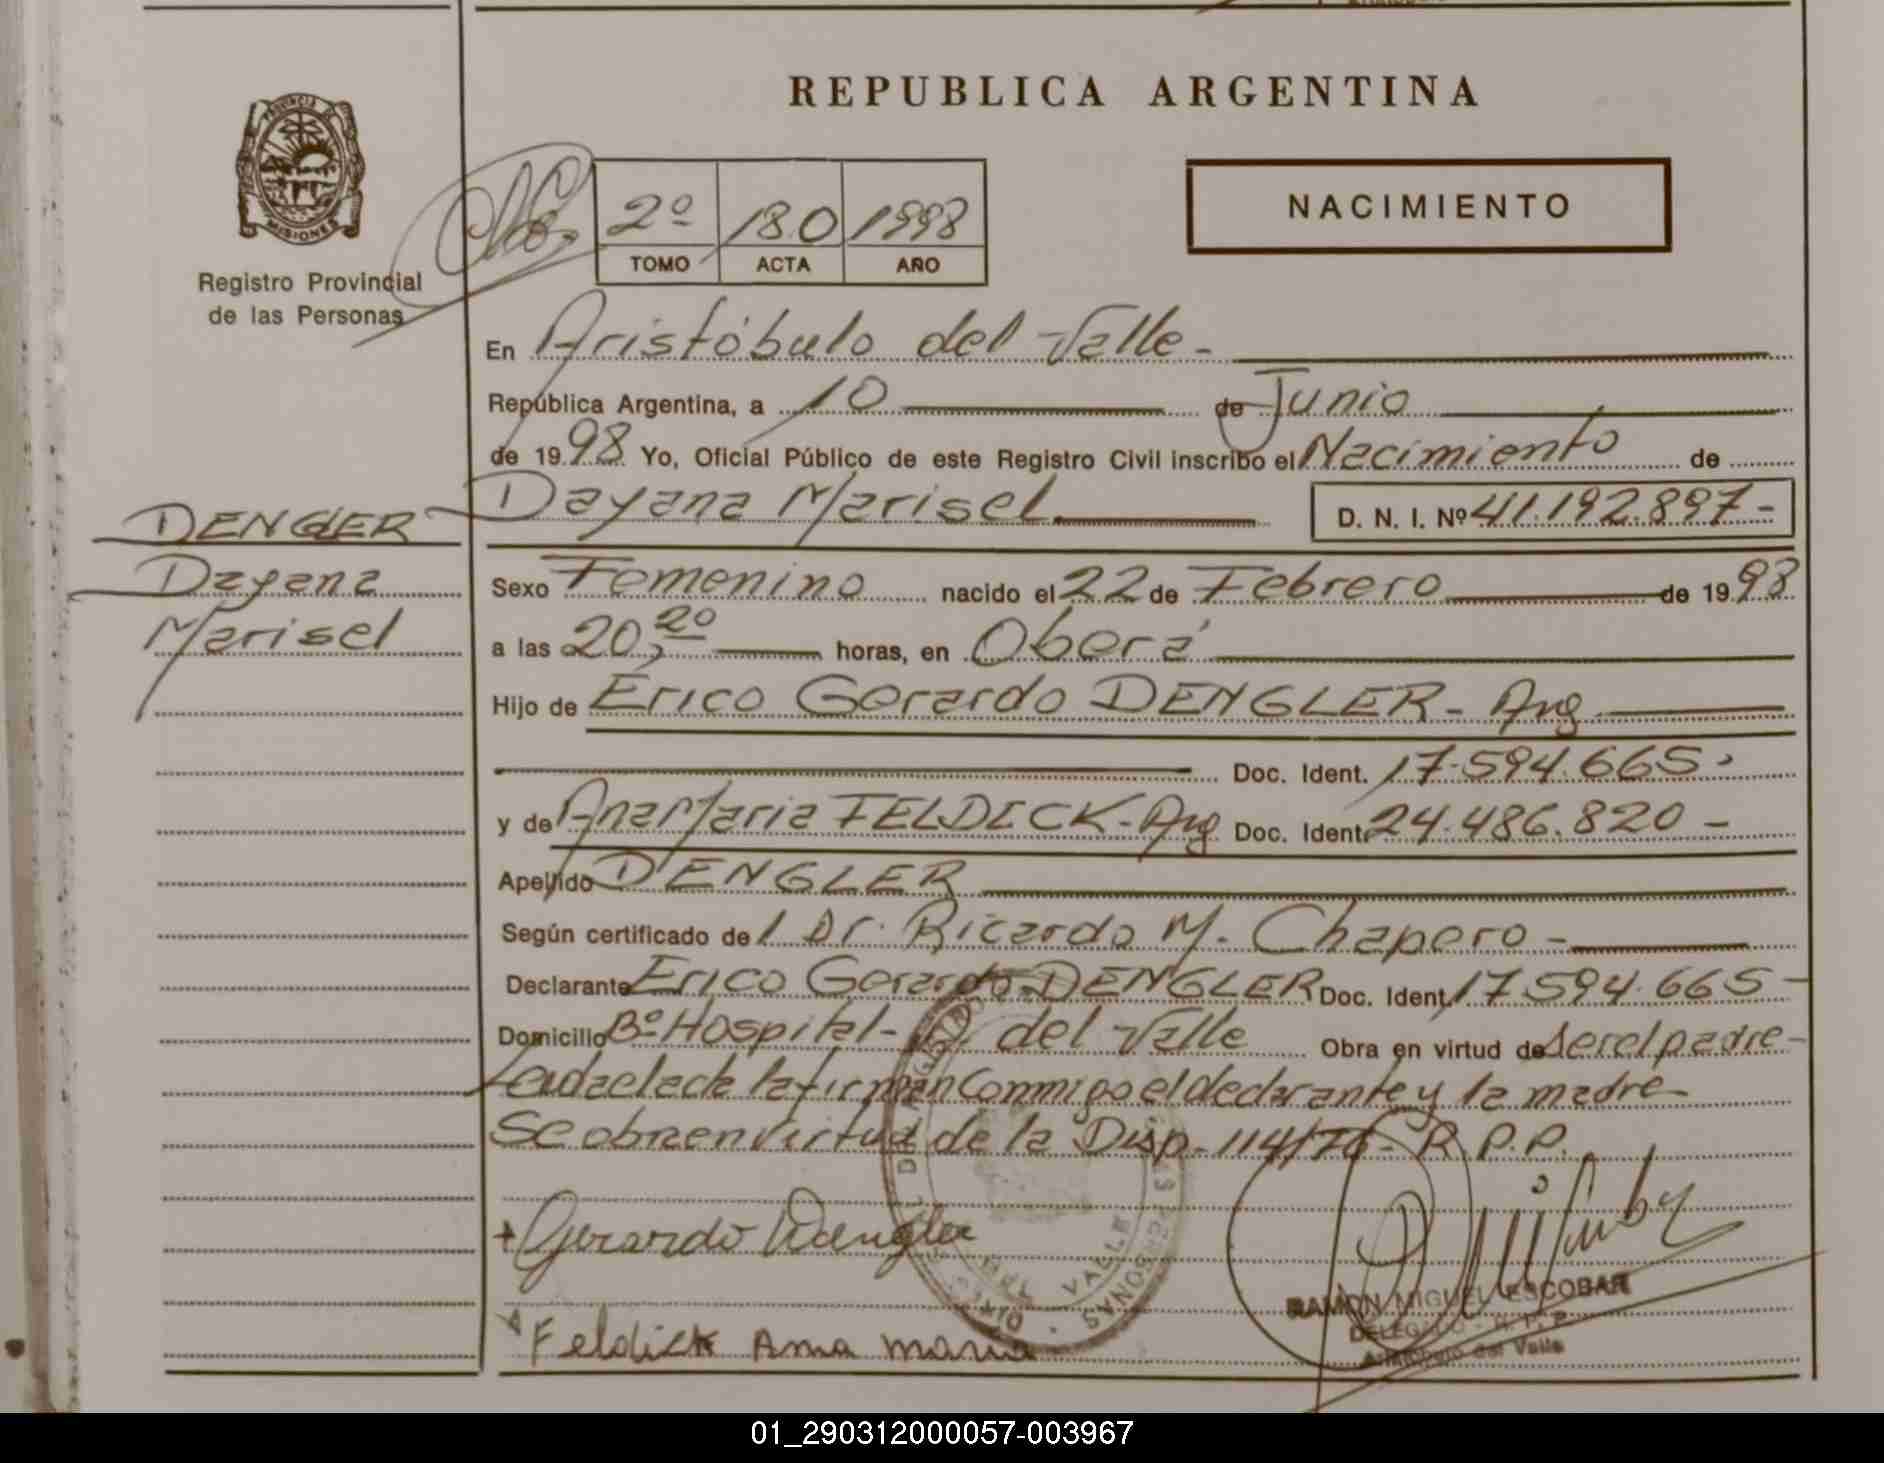 REPUBLICA ARGENTINA
PROVINCIA DE MISIONES
Registro Provincial
de las Personas
2º 180 1998
TOMO ACTA AÑO
NACIMIENTO
En Aristóbulo del Valle -
República Argentina, a 10 de Junio
de 1998 Yo, Oficial Público de este Registro Civil inscribo el Nacimiento de
Dayana Marisel D. N. I. Nº 41.192.897-
DENGLER
Dayana
Marisel
Sexo Femenino nacido el 22 de Febrero de 1998
a las 20,20 horas, en Oberá
Hijo de Erico Gerardo DENGLER - Arg
Doc. Ident. 17.594.665.
y de Ana Maria FELDICK - Arg Doc. Ident. 24.486.820 -
Apellido DENGLER
Según certificado del Dr. Ricardo M. Chapero -
Declarante Erico Gerardo DENGLER Doc. Ident. 17.594.665 -
Domicilio Bº Hospital - A. del Valle Obra en virtud de ser el padre -
Leida el acta la firman Conmigo el declarante y la madre
Se obra en virtud de la Disp. 114/78 - R.P.P.
Gerardo Dengler
Feldick Ana maria
RAMON MIGUEL ESCOBAR
DELEGADO - R. P. P.
Aristóbulo del Valle
01_290312000057-003967